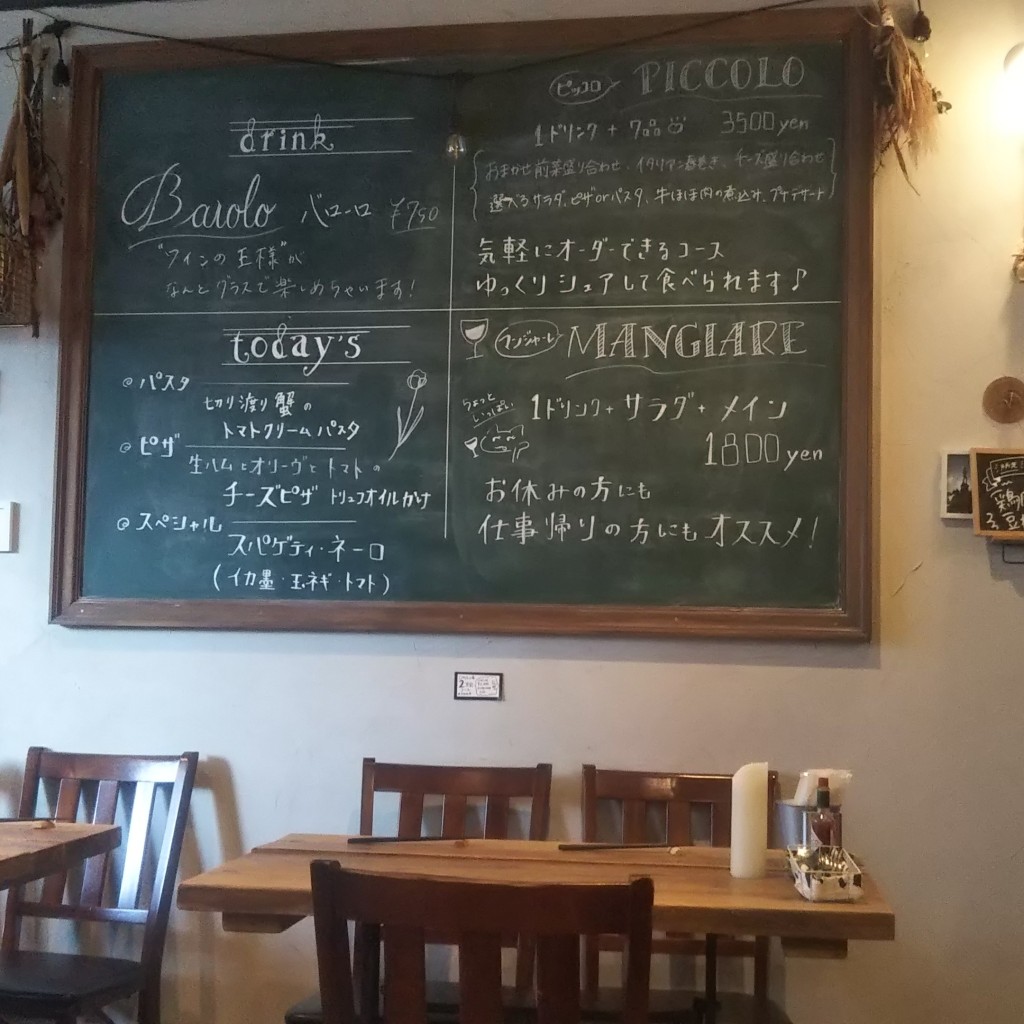 drink
Barolo バローロ ¥750
"ワインの王様"が
なんとグラスで楽しめちゃいます!
today's
◎パスタ
切り渡り蟹の
トマトクリームパスタ
◎ピザ
生ハムとオリーヴとトマトの
チーズピザ トリュフオイルかけ
◎スペシャル
スパゲティ・ネーロ
(イカ墨・玉ネギ・トマト)
ピッコロ PICCOLO
1ドリンク + 7品 3500yen
おまかせ前菜盛り合わせ、イタリアン春巻き、チーズ盛り合わせ
選べるサラダ、ピザorパスタ、牛ほほ肉の煮込み、プチデザート
気軽にオーダーできるコース
ゆっくりシェアして食べられます♪
マンジャーレ MANGIARE
ちょっと
いっぱい
1ドリンク+サラダ+メイン
1800yen
お休みの方にも
仕事帰りの方にもオススメ!